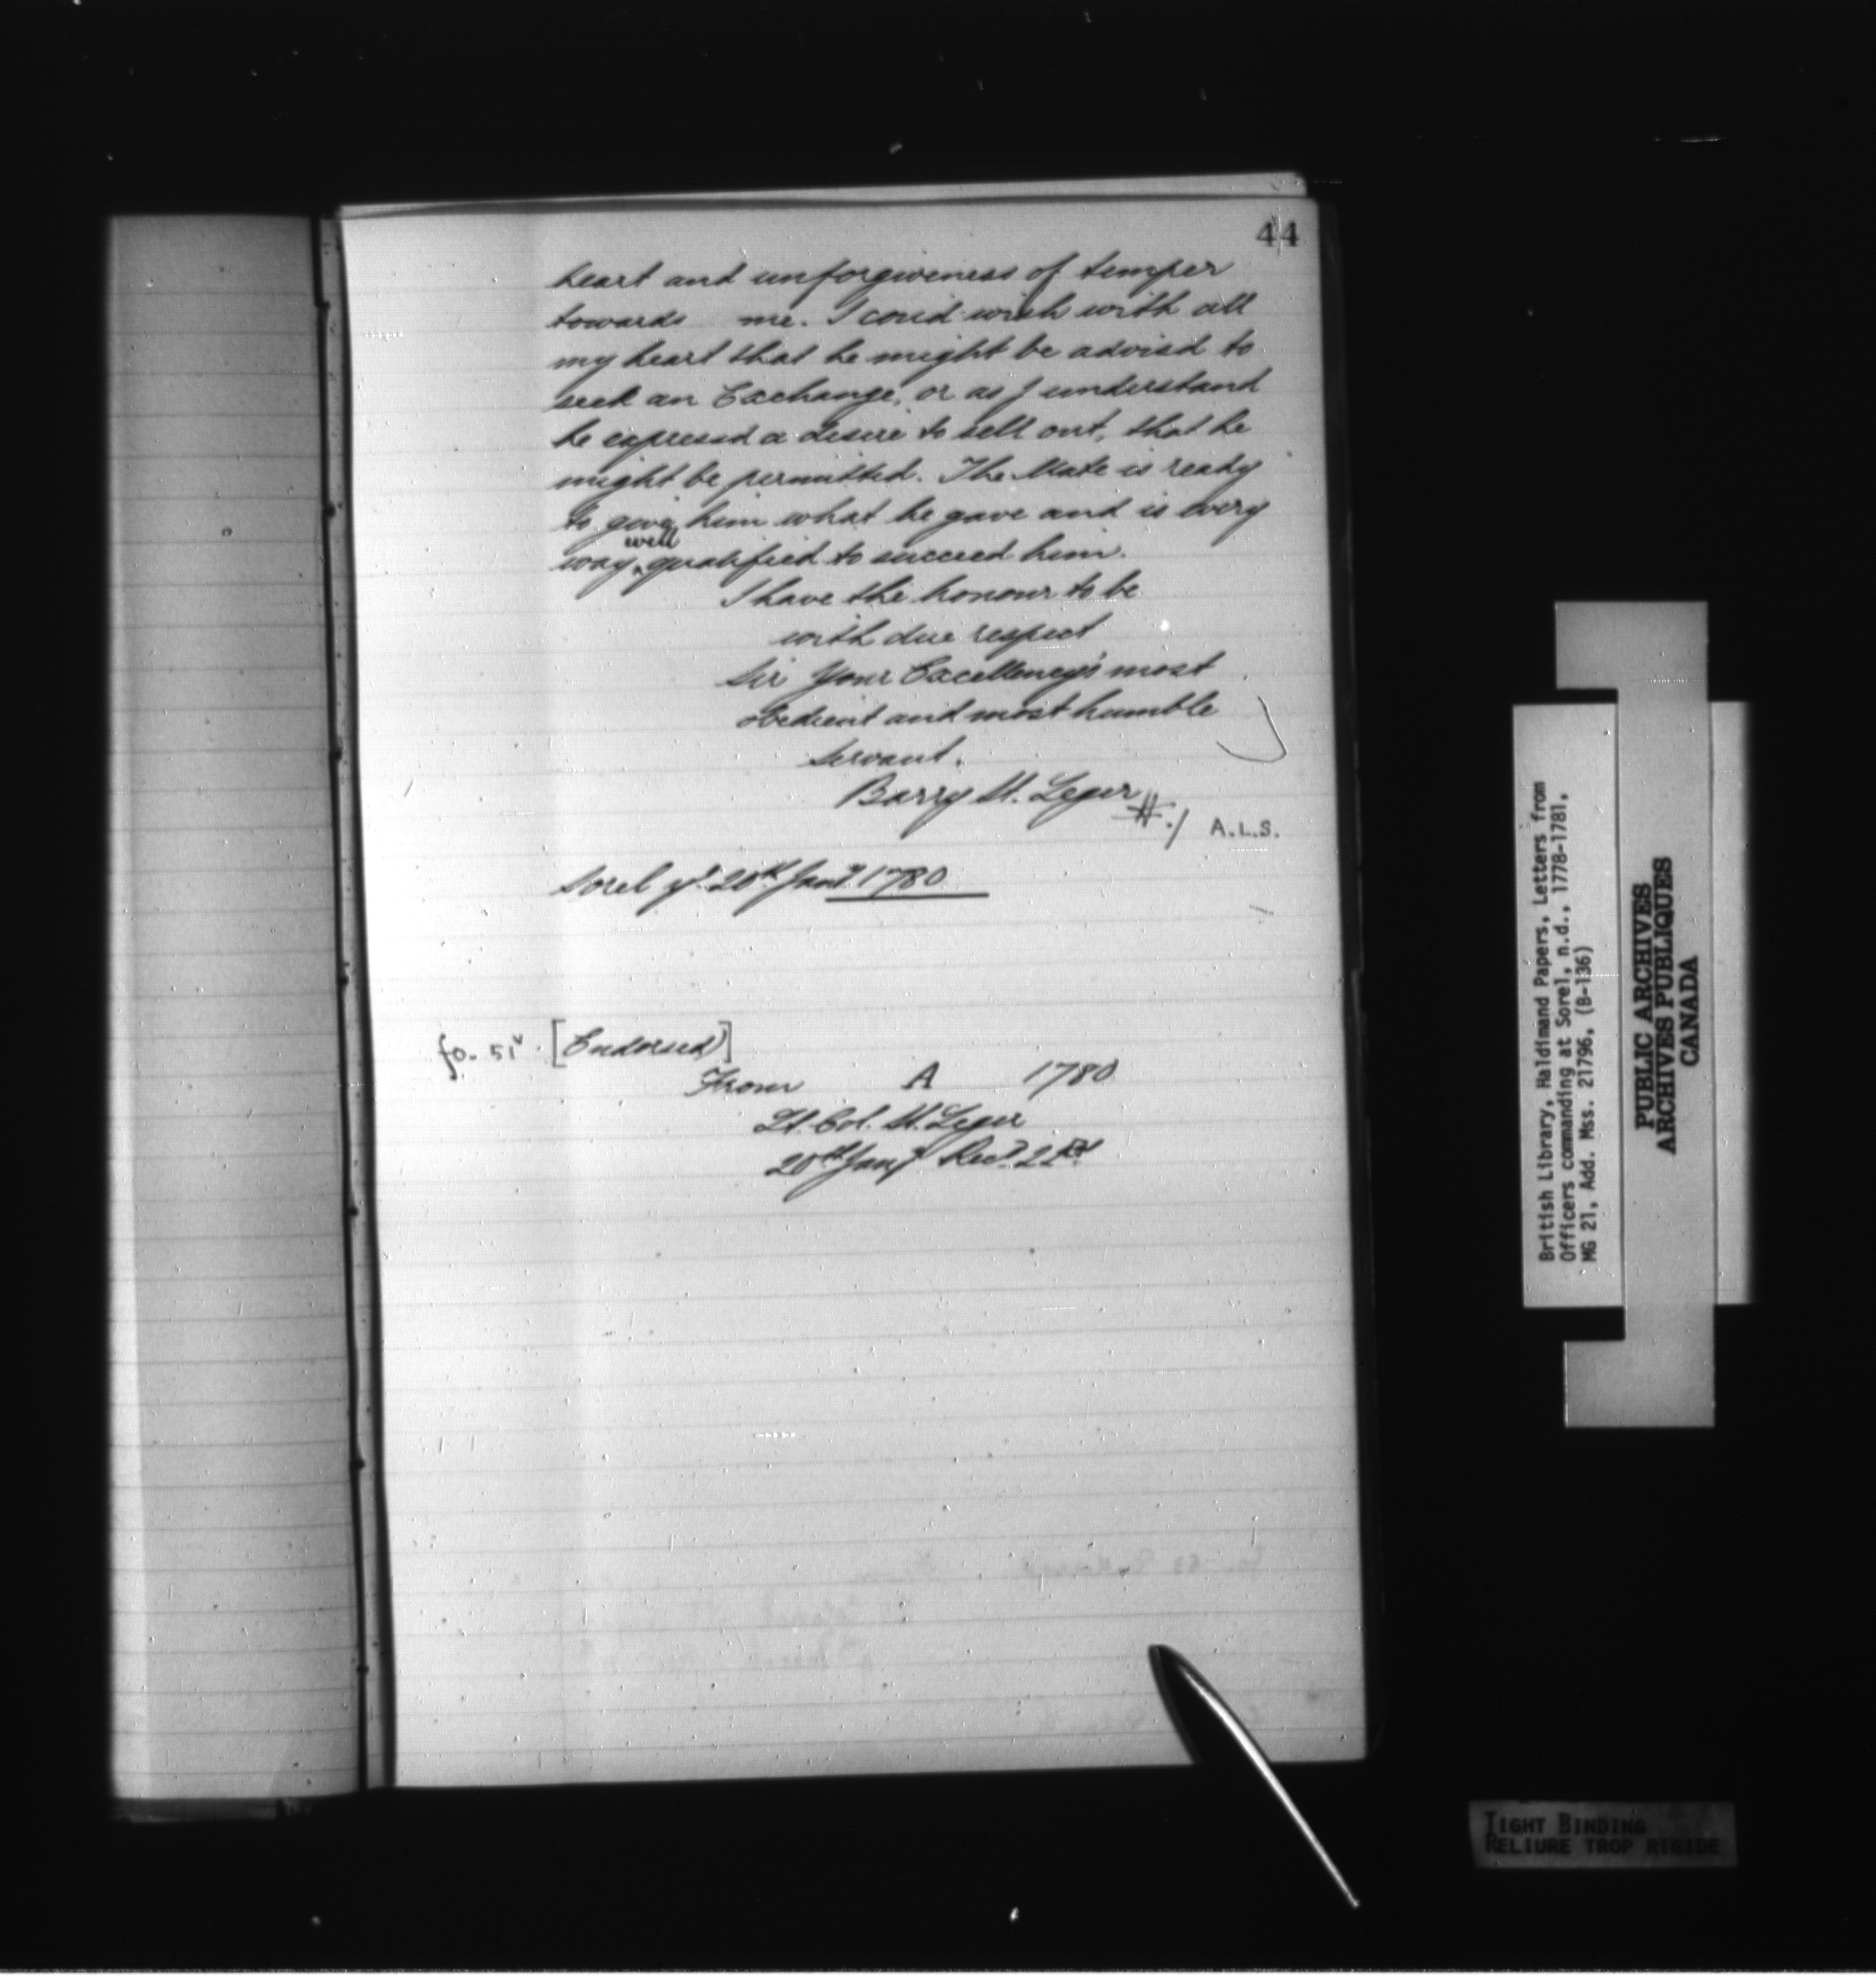 44
heart and unforgiveness of temper
towards me. I coud wish with all
my heart that he might be advisd to
seek an Exchange, or as I understand
he expressd a desire to sell out, that he
might be permitted. The Mate is ready
to give him what he gave and is every
way well qualified to succeed him.
I have the honour to be
with due respect
Sir Your Excellency's most
obedient and most humble
Servant.
Barry St. Leger #./
A.L.S.
Sorel ye. 20th Jany. 1780
fo. 51v. [Endorsed]
From A 1780
Lt. Col. St. Leger
20th Jany Recd. 22nd
British Library, Haldimand Papers, Letters from
Officers commanding at Sorel, n.d., 1778-1781,
MG 21, Add. Mss. 21796, (B-136)
PUBLIC ARCHIVES
ARCHIVES PUBLIQUES
CANADA
TIGHT BINDING
RELIURE TROP RIGIDE